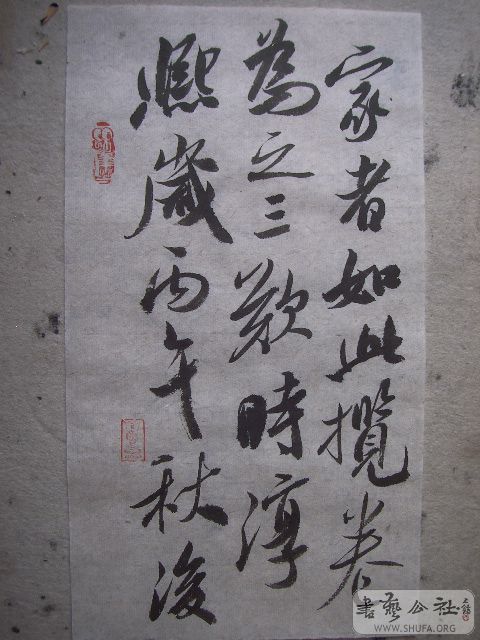 家者如此揽卷
為之三歎時淳
熈歲丙午秋後
書藝公社
WWW.SHUFA.ORG